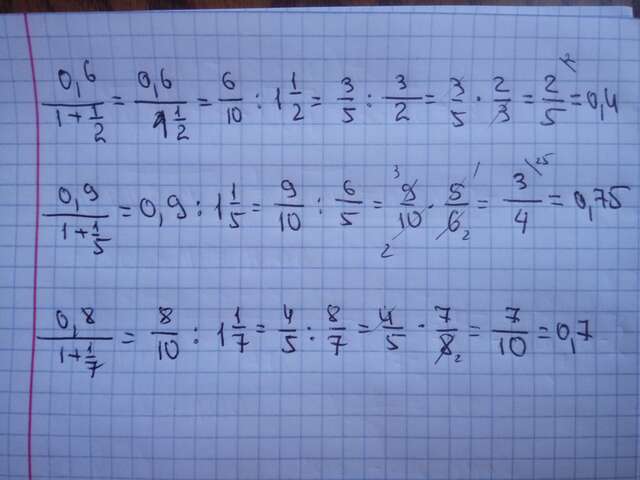 0,6/(1+1/2) = 0,6/(1 1/2) = 6/10 : 1 1/2 = 3/5 : 3/2 = 3/5 · 2/3 = 2/5 \2 = 0,4
0,9/(1+1/5) = 0,9 : 1 1/5 = 9/10 : 6/5 = 3 9/10 2 · 5/6 1 2 = 3/4 \25 = 0,75
0,8/(1+1/7) = 8/10 : 1 1/7 = 4/5 : 8/7 = 4/5 · 7/8 2 = 7/10 = 0,7